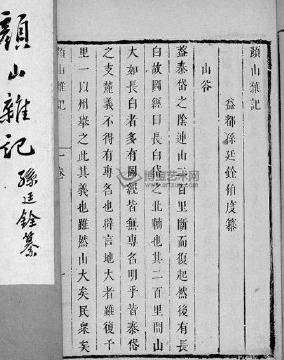 顏山雜記
益都孫廷銓伯度纂
山谷
蓋泰岱之陰連山二百里斷而復起然後有長
白故圖經曰長白岱之北輔也其二百里間山
大如長白者多有圖經皆無專名明乎皆泰岱
之支麓義不得有專名也辟言地大者雖復千
里一以州擧之此其義也雖然山大矣民衆矣
顏山雜記
顏山雜記
孫廷銓纂